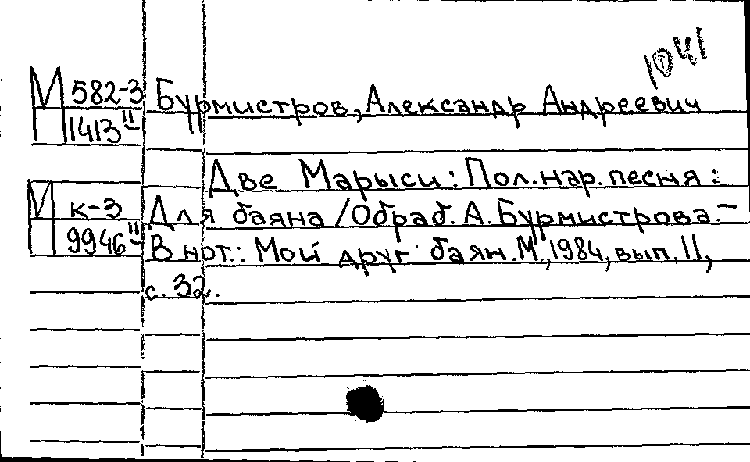 1041
М 582-3 Бурмистров, Александр Андреевич
П 1413 II
Две Марыси: Пол. нар. песня:
М к-3 Для баяна / Обраб. А. Бурмистрова. –
П 9946 II В нот.: Мой друг баян. М., 1984, вып. 11,
с. 32.